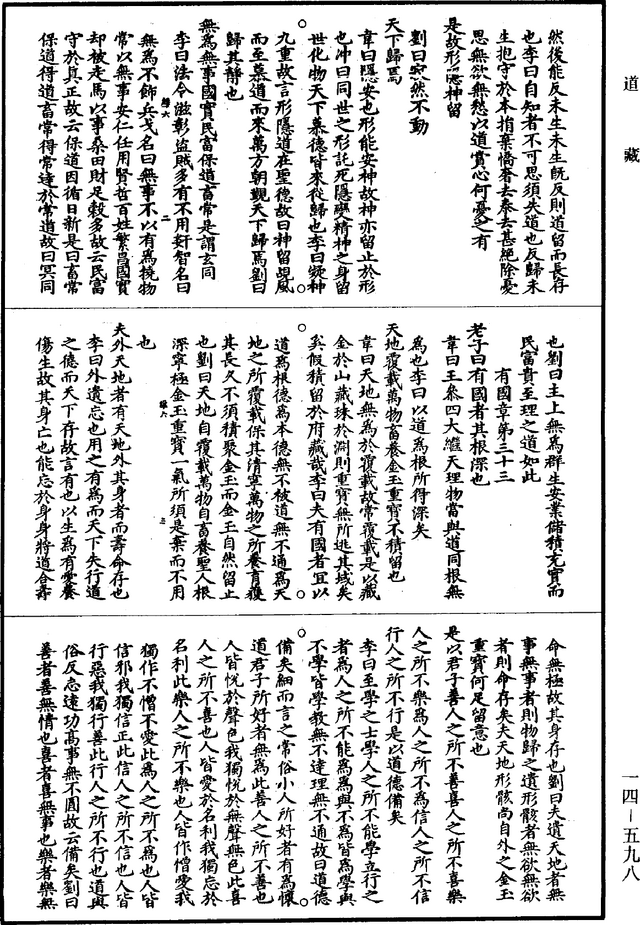 道藏
然後能反未生未生旣反則道留而長存
也李曰自知者不可思須失道也反歸未
生抱守於本捐棄憍奢去泰去甚絕除憂
思無欲無愁以道賞心何憂之有
是故形隱神留
劉曰寂然不動
天下歸焉
韋曰隱安也形能安神故神亦留止於形
也沖曰同世之形託死隱變精神之身留
世化物天下慕德皆來從歸也李曰凝神
九重故言形隱道在聖德故曰神留覩風
而至慕道而來萬方朝觀天下歸焉劉曰
歸其靜也
無爲無事國實民富保道畜常是謂玄同
李曰法令滋彰盜賊多有不用姧智名曰
無爲不飾兵戈名曰無事不以有爲撓物
常以無事安仁任用賢哲百姓繁昌國實
却被走馬以事桑田財足穀多故云民富
守於真正故云保道因循日新是曰畜常
保道得道畜常得常逹於常道故曰冥同
也劉曰主上無爲群生安業儲積充實而
民富貴至理之道如此
有國章第三十三
老子曰有國者其根深也
韋曰王叅四大繼天理物當與道同根無
爲也李曰以道爲根所得深矣
天地覆載萬物畜養金玉重寶不積留也
韋曰天地無爲於覆載故常覆載是以藏
金於山藏珠於淵則重寶無所逃其域矣
奚假積留於府藏哉李曰夫有國者宜以
道爲根德爲本德無不被道無不通爲天
地之所覆載保其清寧萬物之所養育獲
其長久不須積聚金玉而金玉自然留止
也劉曰天地自覆載萬物自畜養聖人根
深寧極金玉重寶一氣所須是棄而不用
也
夫外天地者有天地外其身者而壽命存也
李曰外遺忘也用之有爲而天下失行道
之德而天下存故言有也以生爲有愛養
傷生故其身亡也能忘於身身將道合壽
命無極故其身存也劉曰夫遺天地者無
事無事者則物歸之遺形骸者無欲無欲
者則命存矣夫天地形骸尚自外之金玉
重寶何足留意也
是以君子善人之所不善喜人之所不喜樂
人之所不樂爲人之所不爲信人之所不信
行人之所不行是以道德備矣
李曰至學之士學人之所不能學立行之
者爲人之所不能爲爲與不爲皆爲學與
不學皆學教無不達理無不通故曰道德
備矣細而言之常俗小人所好者有爲懷
道君子所好者無爲此善人之所不善也
人皆悅於聲色我獨悅於無聲無色此喜
人之所不喜也人皆愛於名利我獨忘於
名利此樂人之所不樂也人皆作憎愛我
獨作不憎不愛此爲人之所不爲也人皆
信邪我獨信正此信人之所不信也人皆
行惡我獨行善此行人之所不行也道與
俗反忘遠功高事無不圓故云備矣劉曰
善者善無情也喜者喜無事也樂者樂無
一四－五九八